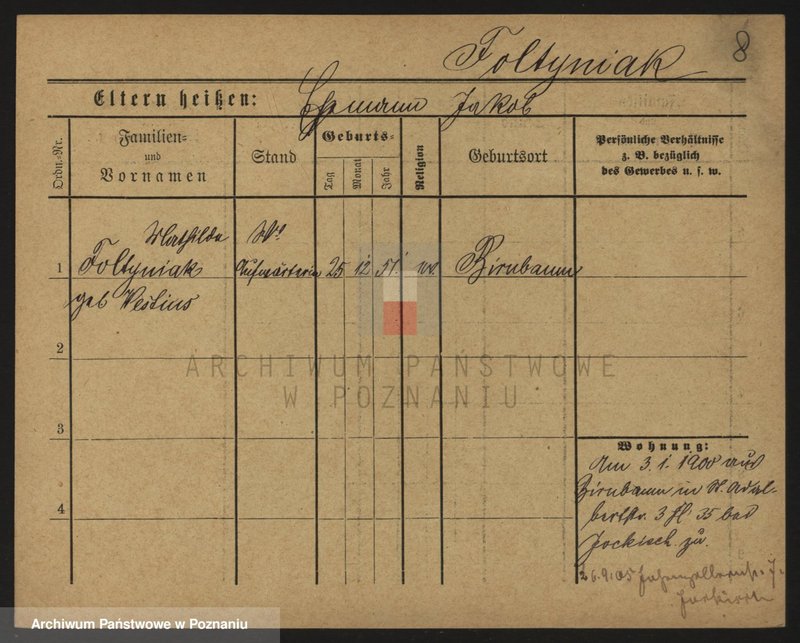 8
Foltyniak
Eltern heißen: Ehemann Jakob
Ordn.-Nr.
Familien-
und
Vornamen
Stand
Geburts-
Tag
Monat
Jahr
Religion
Geburtsort
Persönliche Verhältnisse
z. B. bezüglich
des Gewerbes u. s. w.
Mathilde Ww
1 Foltyniak Aufwärterin 25 12 51 Birnbaum
geb Westius
2
ARCHIWUM PAŃSTWOWE
W POZNANIU
3
4
Wohnung:
Am 3. 1. 1900 aus
Birnbaum in St. Adal-
bertstr. 3 35 bei
Jockisch zu.
26.9.05
Archiwum Państwowe w Poznaniu